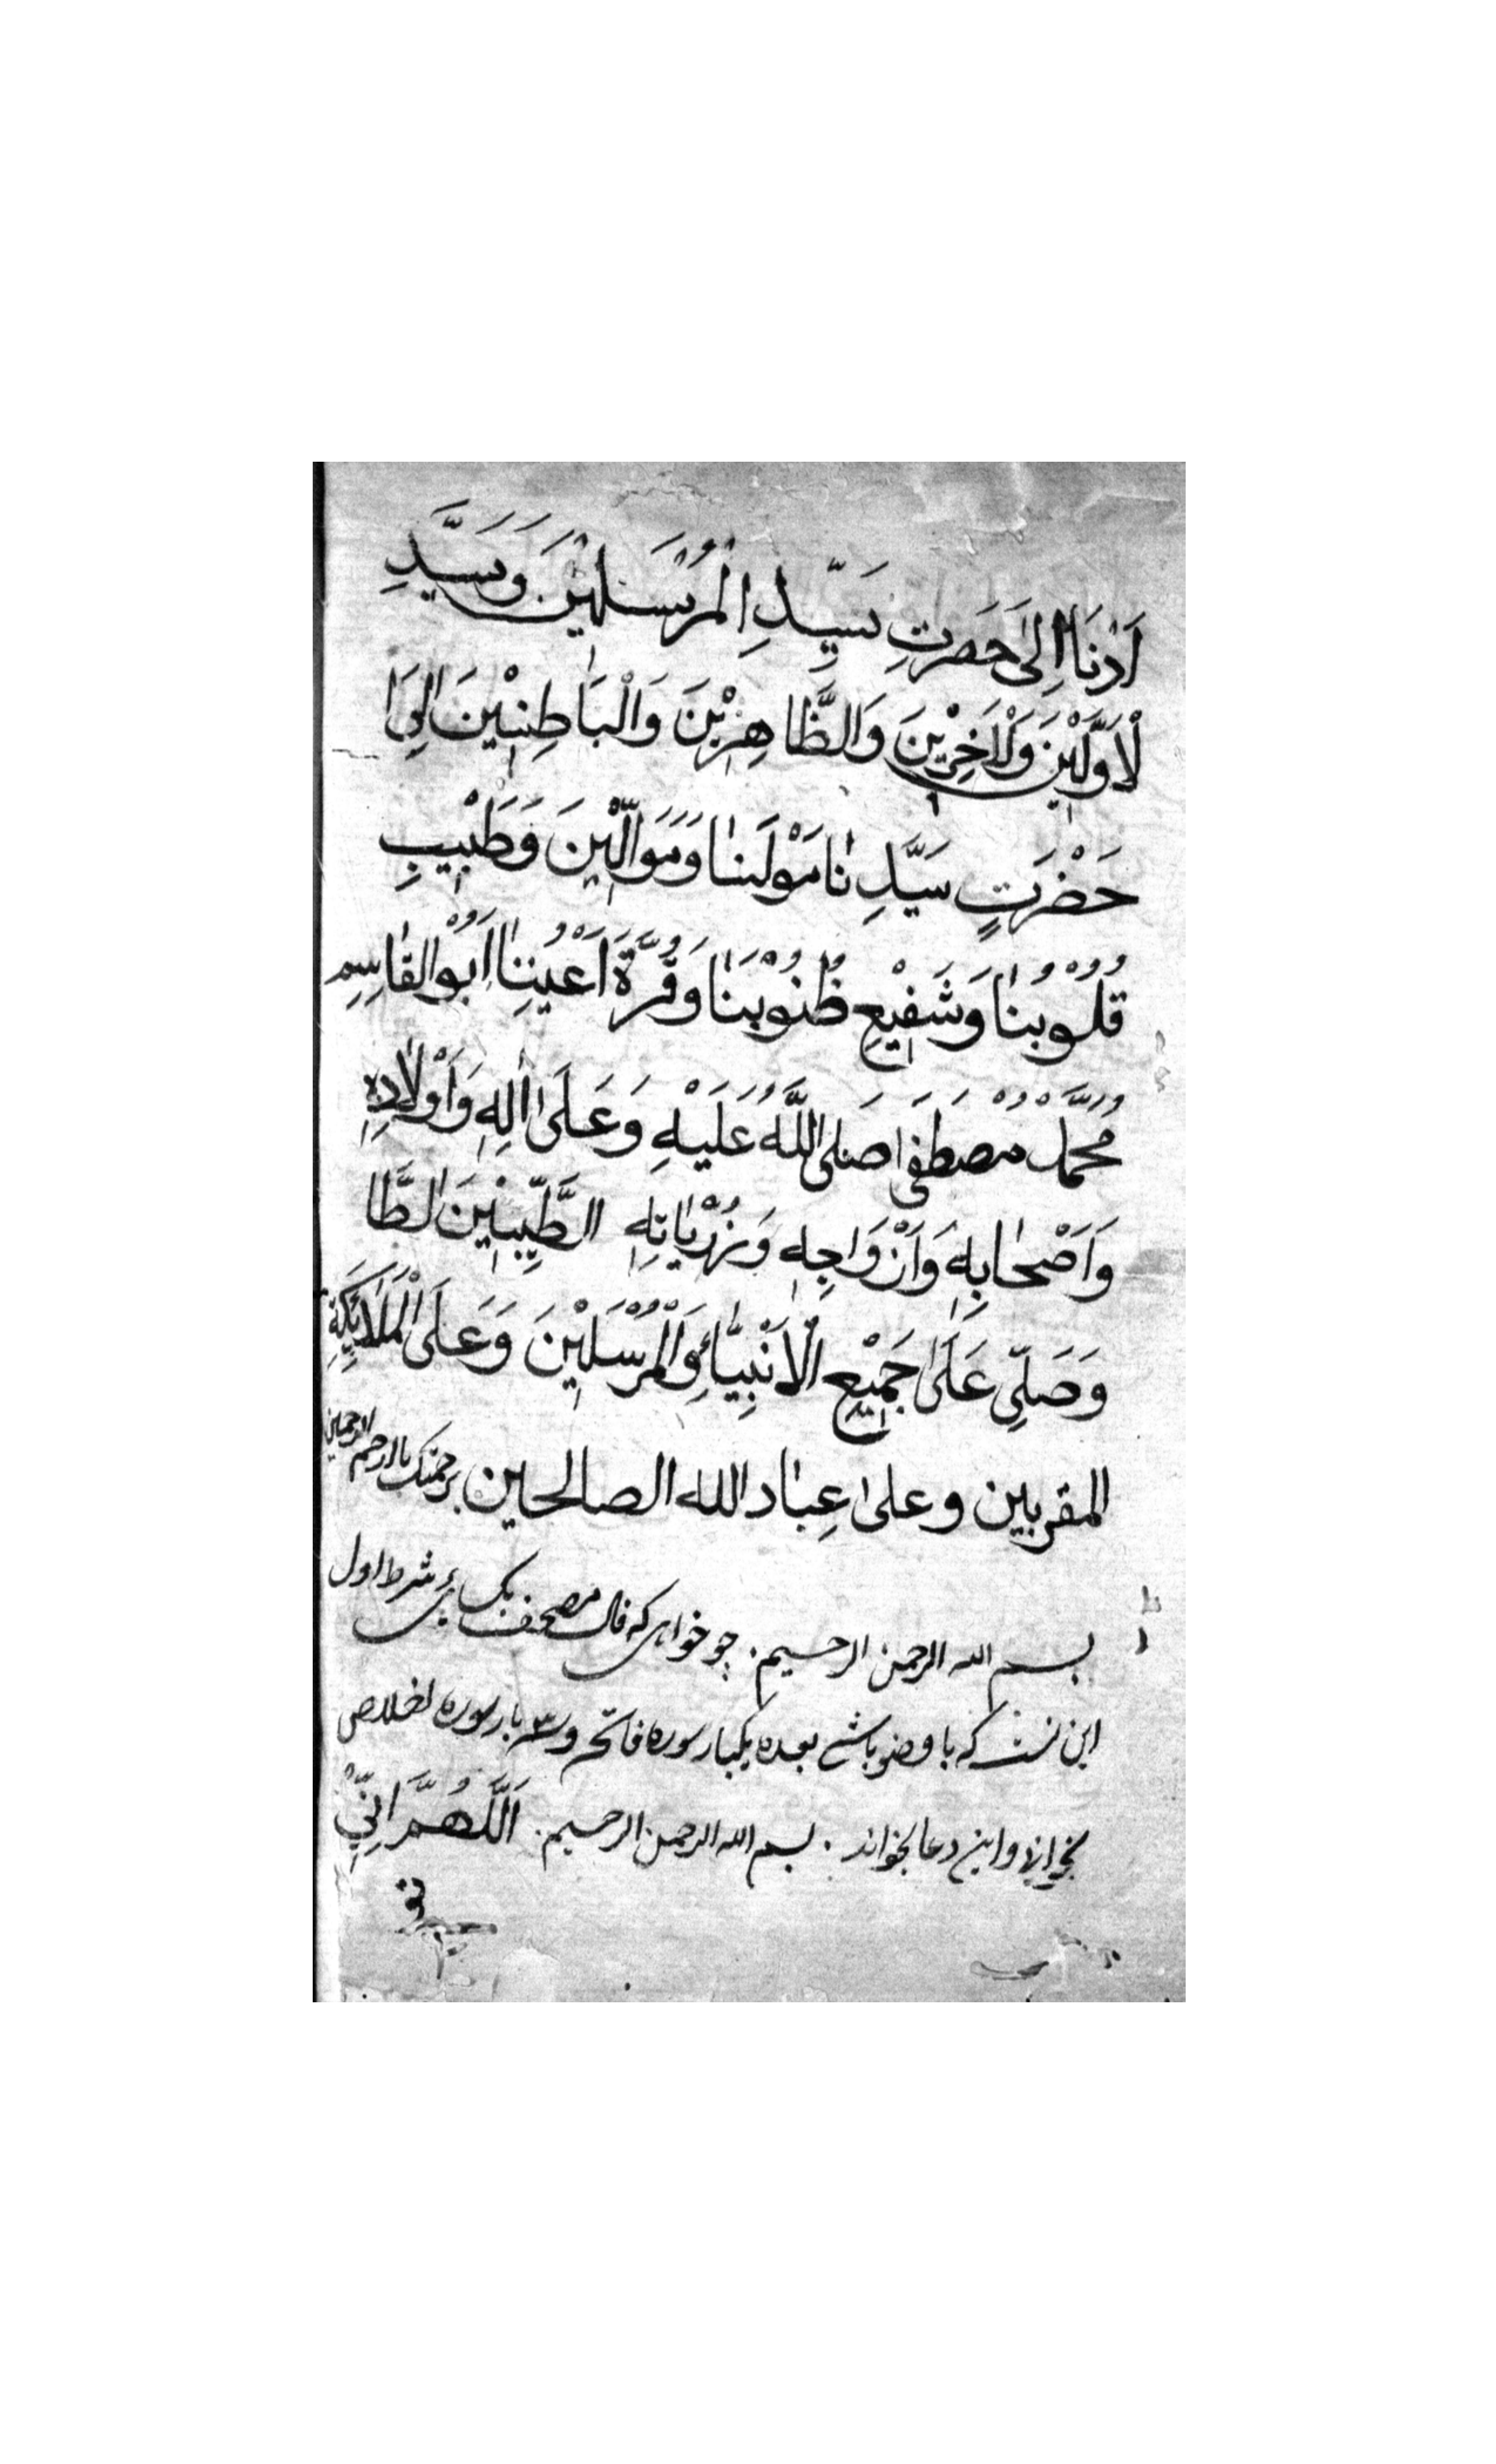 اَدْنَا اِلىٰ حَضرَتِ سَيِّدِ الْمُرْسَلِيْنَ وَسَيَّدِ
لْاَوَّلِيْنَ وَلْاٰخِرِيْنَ وَالظَّاهِرِيْنَ وَالْبَاطِنِيْنَ اِلىَا
حَضْرَتٍ سَيَّدِ نٰا مَوْلَنٰا وَمَوَالّيْنَ وَطَبْيبِ
قُلُوبنٰا وَشَفِيْعِ ظُنُوْبنَٰا وَقُرَّةَ اَعْيُنِنٰا اَبُوْالقٰاسِمِ
مُحَمَّدْ مُصْطَفَىٰ صَلىَ اللَّهُ عَلَيْهِ وَعَلَىٰ اٰلِهِ وَاَوْلٰادِهِ
وَاَصْحٰابِهِ وَاَزْوَاجِهِ وَزُرْيٰاتِهِ الطَّيِّبِيْنَ الطَّا
وَصَلِّى عَلَىٰ جَمِيْعِ الْاَنْبِيَّائِ وَالْمُرْسَلِيْنَ وَعَلَى الْمَلَائِكَةِ
المقربين وعلىٰ عِبٰاد الله الصالحين برحمتك يا ارحم الرحمين
بسم الله الرحمن الرحيم. چو خواهى كه فال مصحف شرط اول
اين كه با وضو باشے بعده يكبار سوره فاتحه و ٣ بار سوره اخلاص
واين دعا بخواند . بسم الله الرحمن الرحيم . اَللَّهُمَّ اِنِّىْ